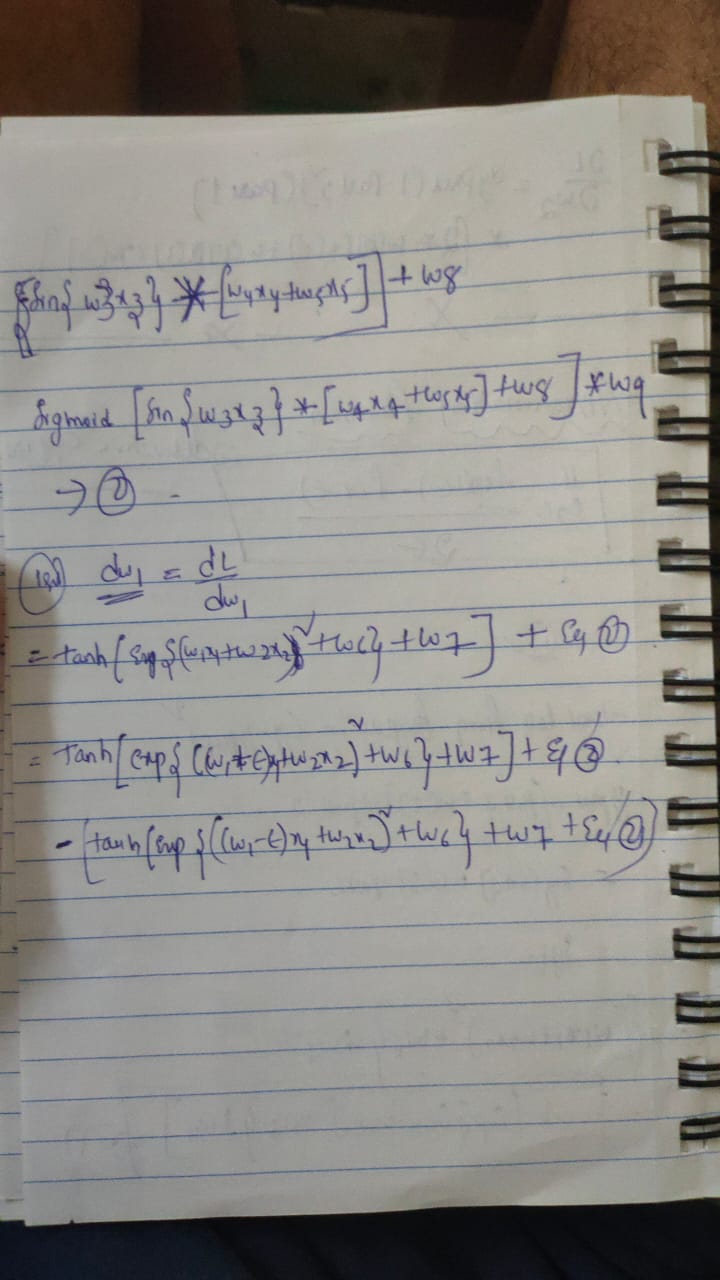 [Sin{w3x3} * [w4x4+w5x5]] + w8
Sigmoid [Sin{w3x3} * [w4x4+w5x5] + w8] * w9
→ ②
dw1 = dL/dw1
= tanh[exp{(w1x1+w2x2)² + w6} + w7] + Eq ②
= Tanh[exp{((w1+ϵ)x1+w2x2)² + w6} + w7] + Eq ②
- [tanh[exp{((w1-ϵ)x1+w2x2)² + w6} + w7 + Eq ②]